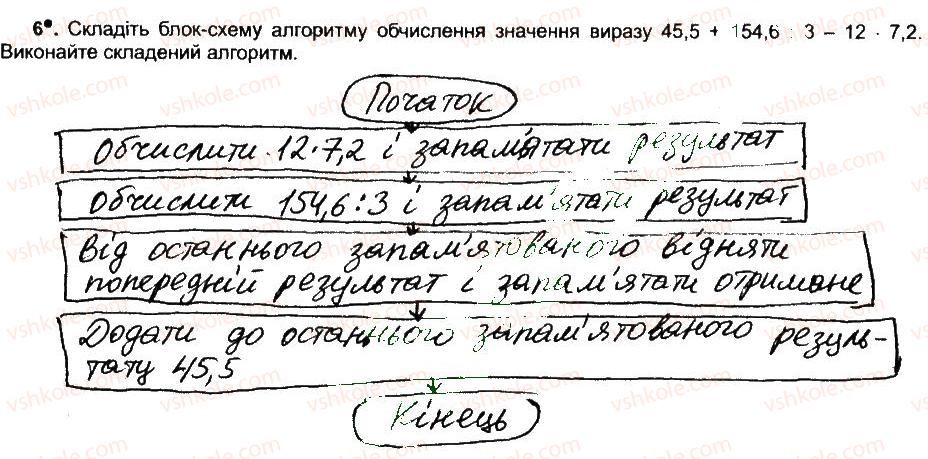 6•. Складіть блок-схему алгоритму обчислення значення виразу 45,5 + 154,6 : 3 – 12 · 7,2.
Виконайте складений алгоритм.
Початок
Обчислити 12·7,2 і запам'ятати результат
Обчислити 154,6:3 і запам'ятати результат
Від останнього запам'ятованого відняти
попередній результат і запам'ятати отримане
Додати до останнього запам'ятованого резуль-
тату 45,5
Кінець